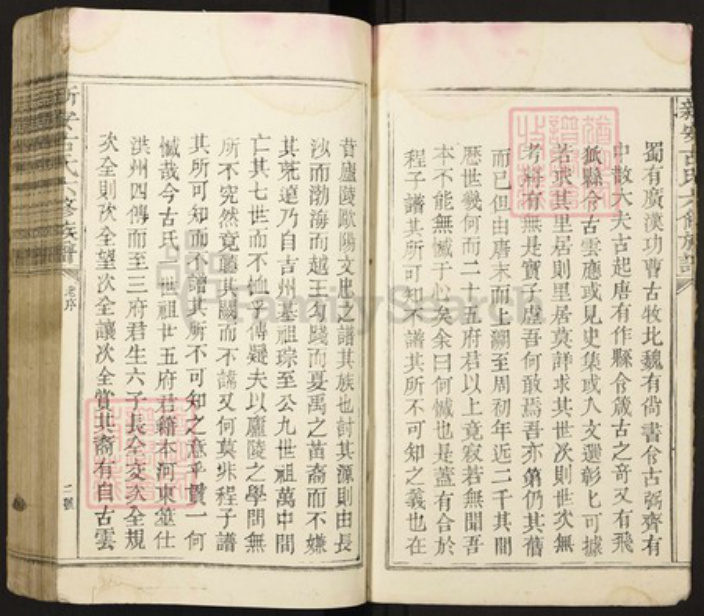 蜀有廣漢功曹古牧北魏有尙書令古弼齊有
中散大夫古起唐有作縣令箴古之奇又有飛
狐縣令古雲應或見史集或入文選彰匕可據
若求其里居則里居莫詳求其世次則世次無
考將有無是實子虛吾何敢焉吾亦第仍其舊
而已但由唐末而上溯至周初年近二千其間
歷世幾何而二十五府君以上竟寂若無聞吾
本不能無憾于心矣余曰何憾也是蓋有合於
程子譜其所可知不譜其所不可知之義也在
昔廬陵歐陽文忠之譜其族也討其源則由長
沙而渤海而越王勾踐而夏禹之苗裔而不嫌
其荒遠乃自吉州基祖琮至公九世祖萬中間
亡其七世而不恤乎傳疑夫以廬陵之學問無
所不究然竟闕而不譜又何莫非程子譜
其所可知而不譜其所不可知之意乎賢一何
憾哉今古氏一世祖廿五府君籍本河東筮仕
洪州四傳而至三府君生六子長全交次全規
次全則次全望次全讓次全賞其裔有自古雲
新安古氏六修族譜
老序
二號
新安古氏六修族譜
FamilySearch